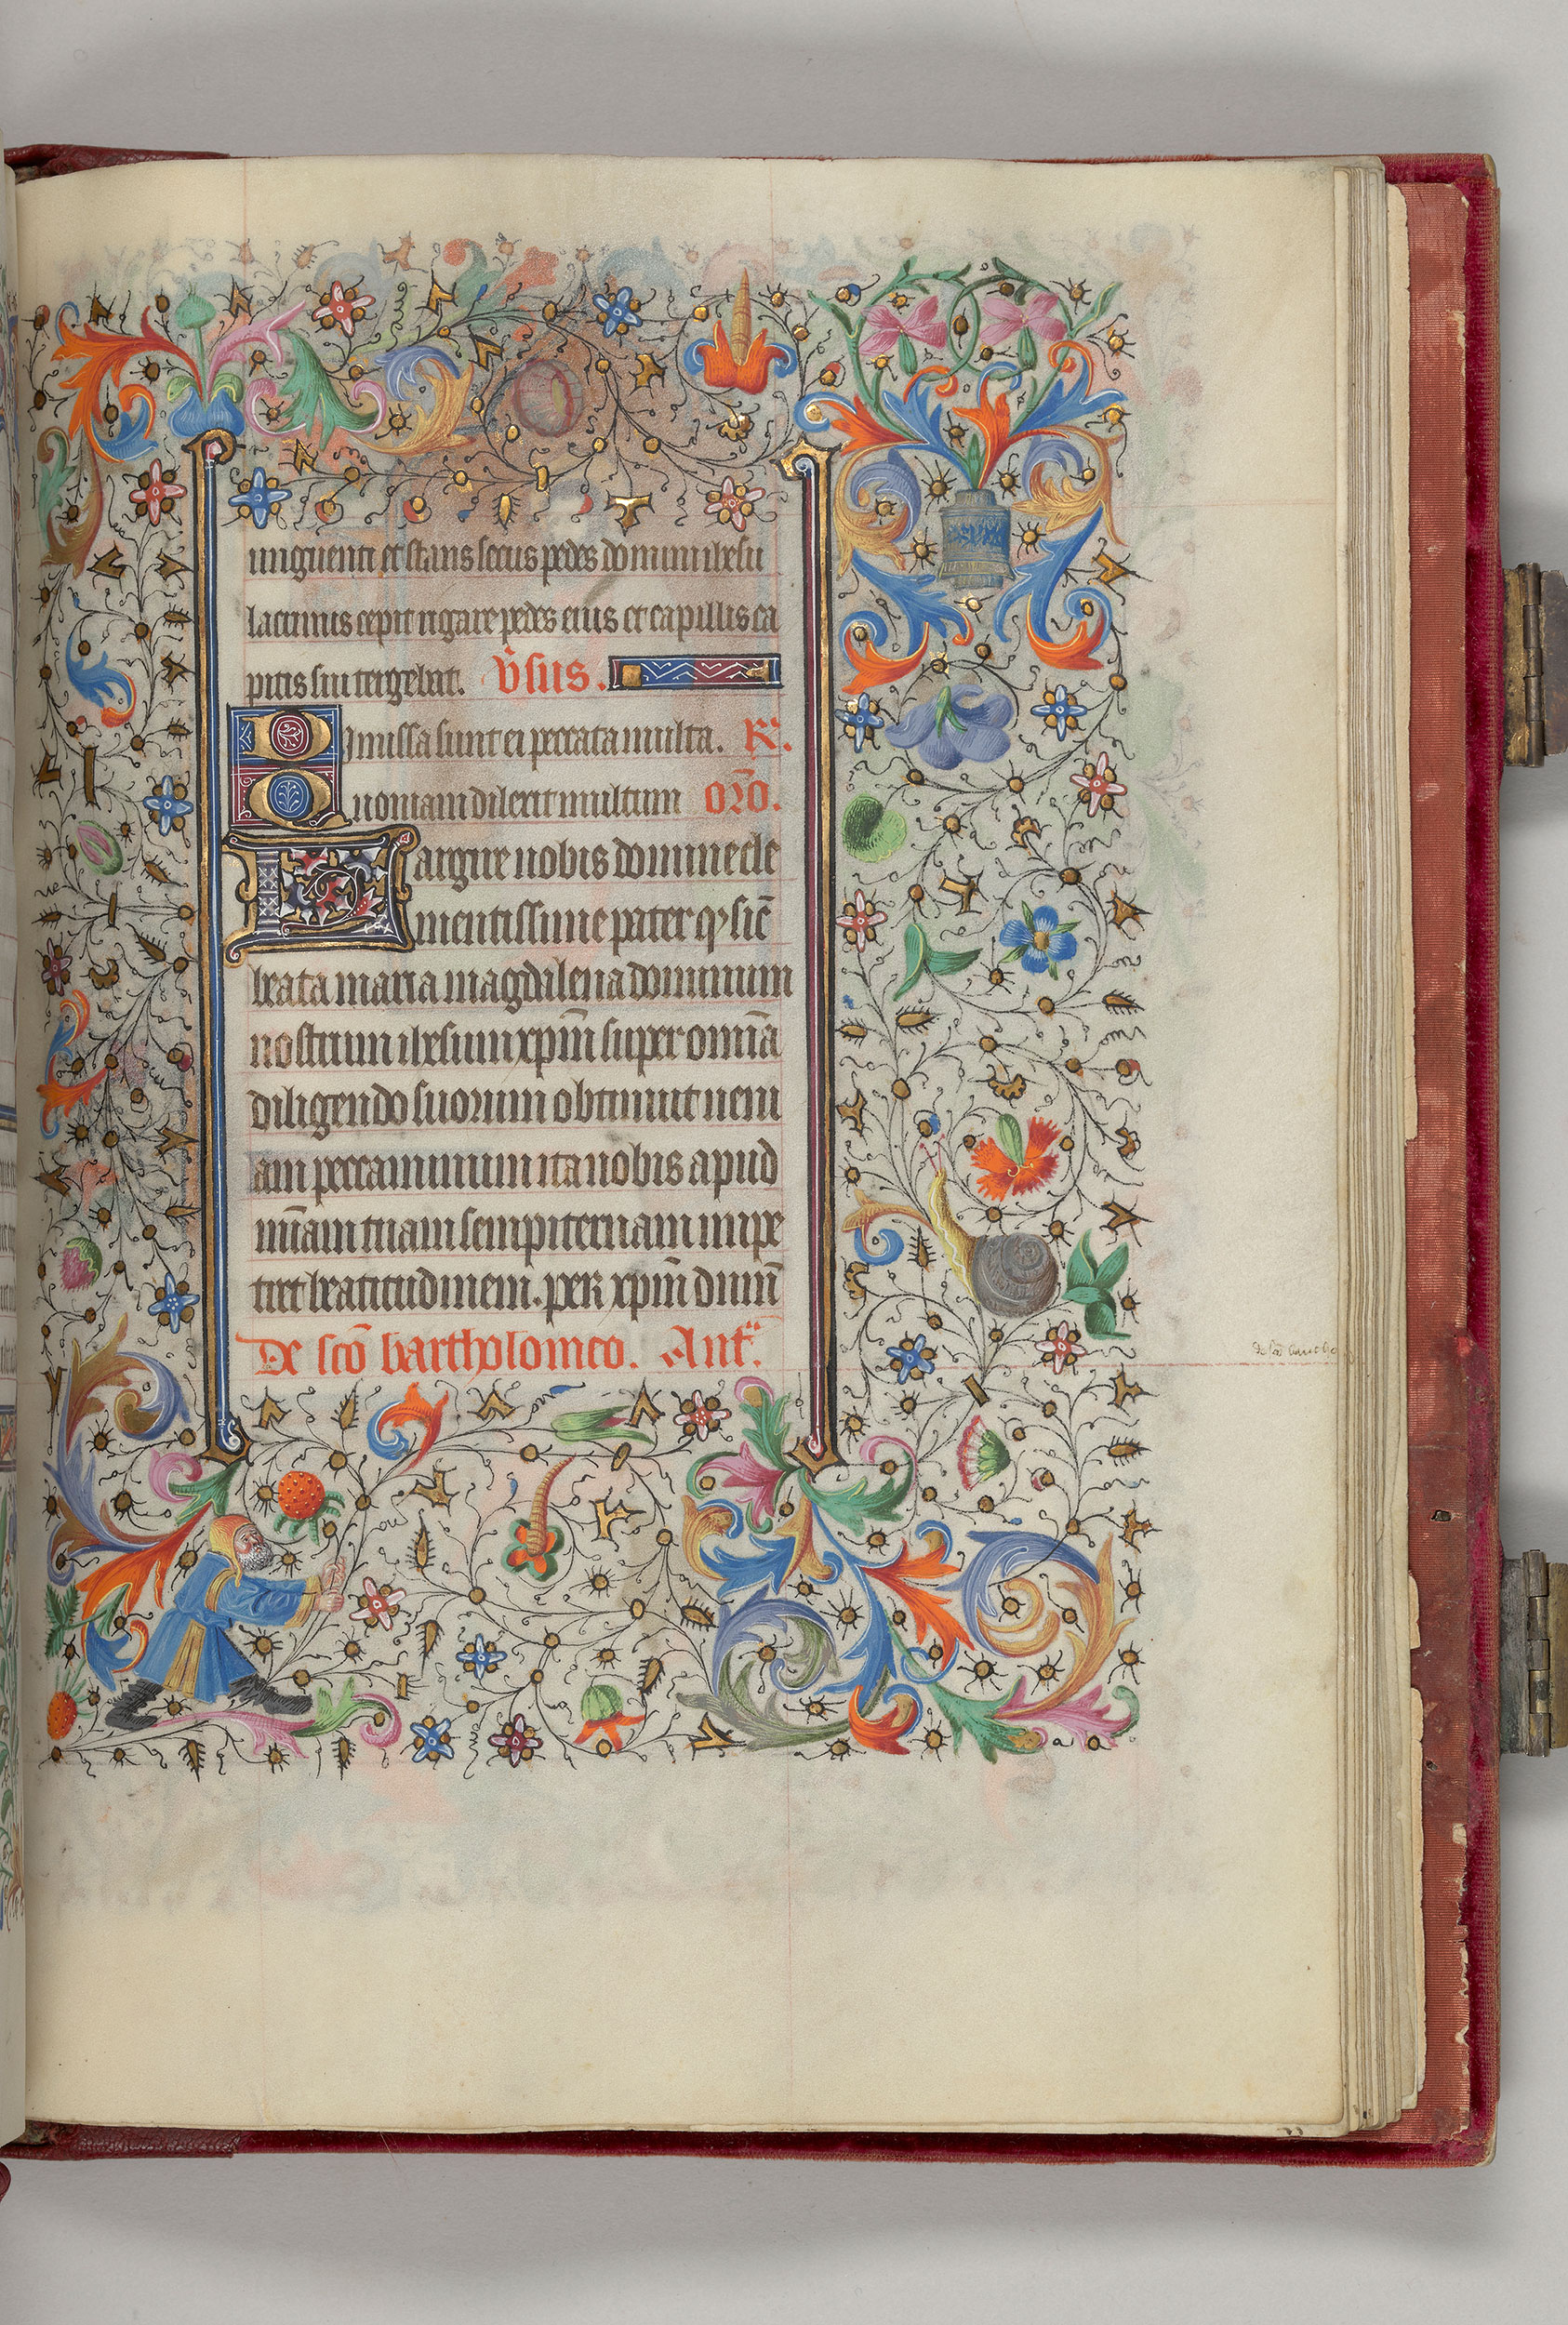 unguenti et stans secus pedes domini ihesu
lacrimis cepit rigare pedes eius et capillis ca
pitis sui tergebat. v̄sus.
Dimissa sunt ei peccata multa. R.
Quoniam dilexit multum orō.
Largire nobis domine cle
mentissime pater qͥ sic̄
beata maria magdalena dominum
nostrum ihesum xp̄m super omīa
diligendo suorum obtinuit ueni
am peccaminum ita nobis apud
mīam tuam sempiternam impe
tret beatitudinem. per xp̄m dnm̄
De sc̄o bartholomeo. Ant.